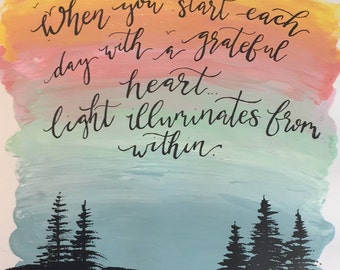 When you start each
day with a grateful
heart...
light illuminates from
within.